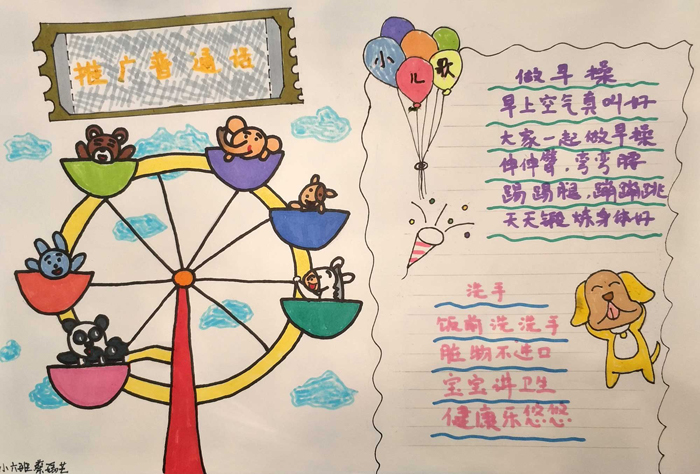 推广普通话
小儿歌
做早操
早上空气真叫好
大家一起做早操
伸伸臂，弯弯腰
踢踢腿，蹦蹦跳
天天锻炼身体好
洗手
饭前洗洗手
脏物不进口
宝宝讲卫生
健康乐悠悠
小六班